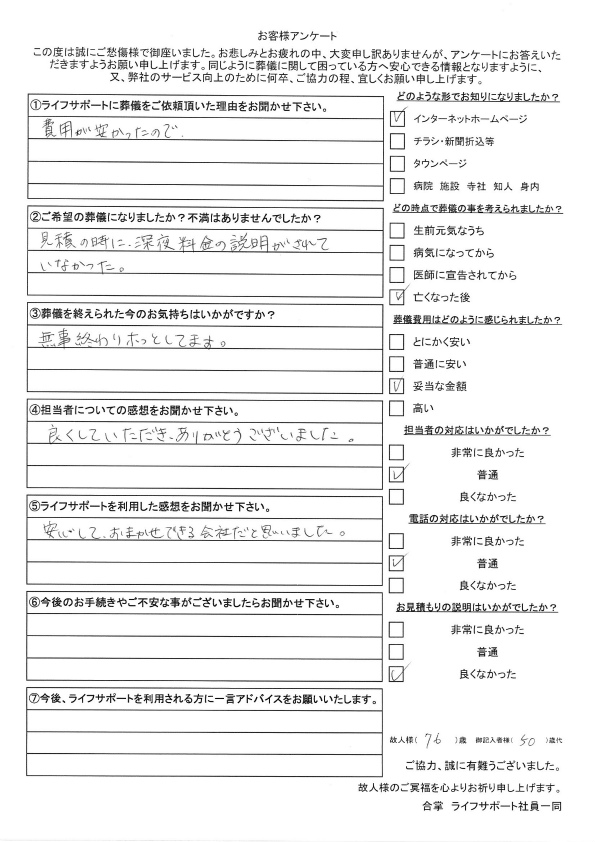 お客様アンケート
この度は誠にご愁傷様で御座いました。お悲しみとお疲れの中、大変申し訳ありませんが、アンケートにお答えいた
だきますようお願い申し上げます。同じように葬儀に関して困っている方へ安心できる情報となりますように、
又、弊社のサービス向上のために何卒、ご協力の程、宜しくお願い申し上げます。
①ライフサポートに葬儀をご依頼頂いた理由をお聞かせ下さい。
費用が安かったので.
②ご希望の葬儀になりましたか？不満はありませんでしたか？
見積の時に、深夜料金の説明がされて
いなかった。
③葬儀を終えられた今のお気持ちはいかがですか？
無事終わりホッとしてます。
④担当者についての感想をお聞かせ下さい。
良くしていただき、ありがとうございました。
⑤ライフサポートを利用した感想をお聞かせ下さい。
安心して、おまかせできる会社だと思いました。
⑥今後のお手続きやご不安な事がございましたらお聞かせ下さい。
⑦今後、ライフサポートを利用される方に一言アドバイスをお願いいたします。
どのような形でお知りになりましたか？
インターネットホームページ
チラシ・新聞折込等
タウンページ
病院 施設 寺社 知人 身内
どの時点で葬儀の事を考えられましたか？
生前元気なうち
病気になってから
医師に宣告されてから
亡くなった後
葬儀費用はどのように感じられましたか？
とにかく安い
普通に安い
妥当な金額
高い
担当者の対応はいかがでしたか？
非常に良かった
普通
良くなかった
電話の対応はいかがでしたか？
非常に良かった
普通
良くなかった
お見積もりの説明はいかがでしたか？
非常に良かった
普通
良くなかった
故人様( 76 )歳 御記入者様( 50 )歳代
ご協力、誠に有難うございました。
故人様のご冥福を心よりお祈り申し上げます。
合掌 ライフサポート社員一同